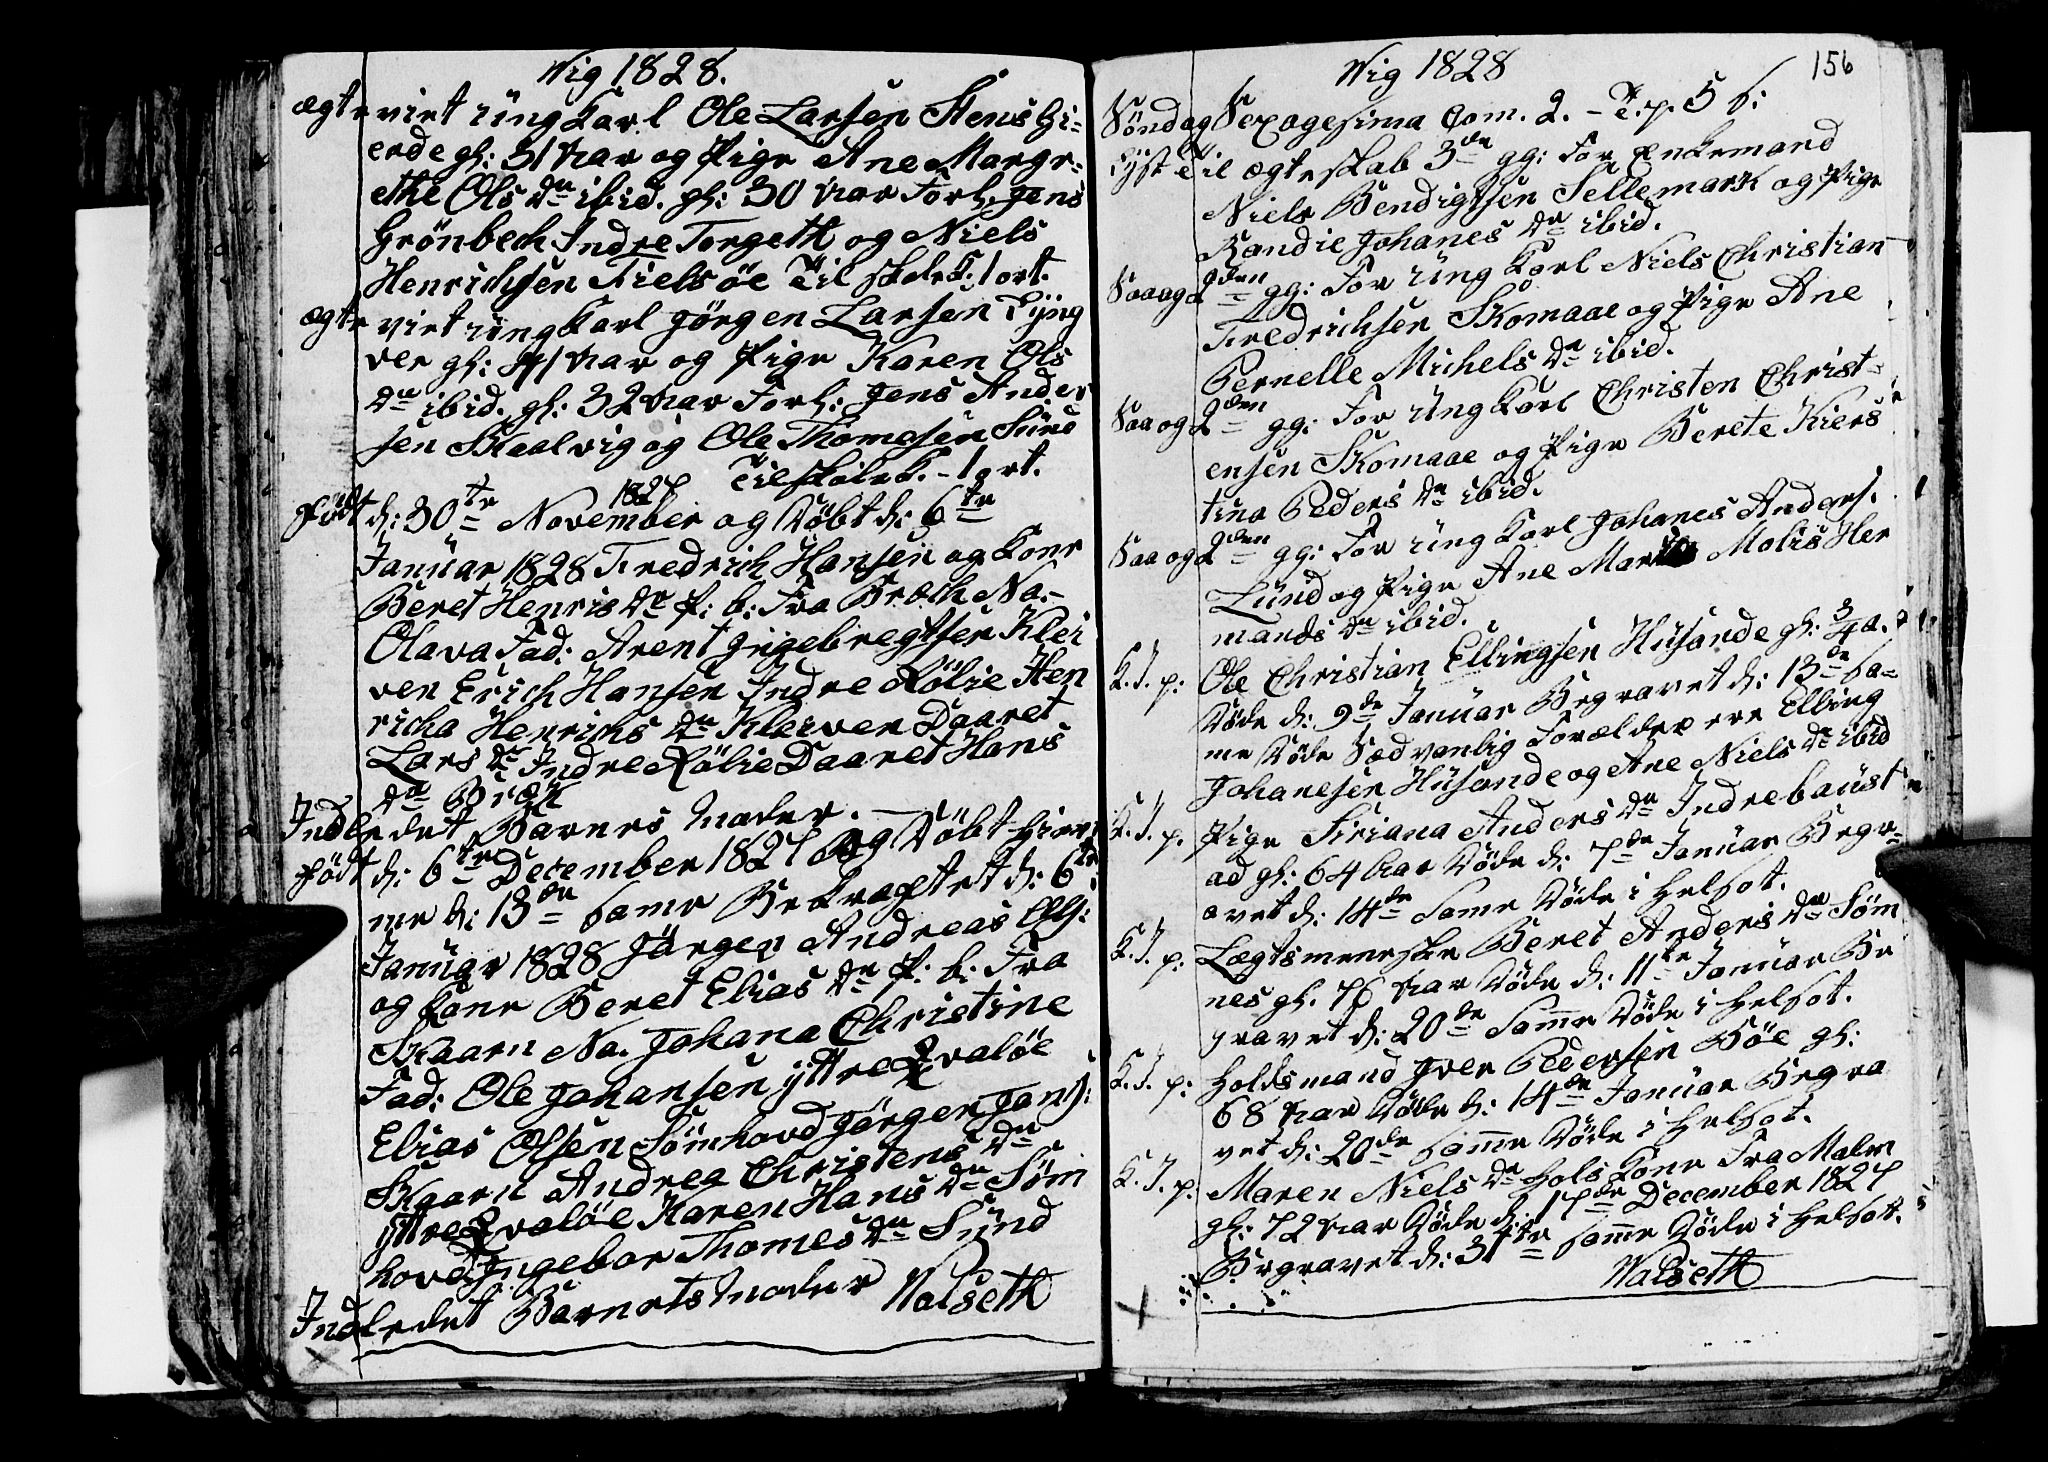 Wig 1828.
ægte viet ung Karl Ole Larsen Stens Gi-
erde gl: 31 Aar og Pige Ane Margr-
ethe Ols Da ibid. gl: 30 Aar Forl. Jens
Grönbech Indre Torgeth og Niels
Henrichsen Fielsöe Til skolek. 1 ort.
ægte viet ung Karl Jörgen Larsen Lyng
ver gl: 41 Aar og Pige Karen Ols
Da ibid. gl: 32 Aar Forl: Jens Ander
sen Skaalvig og Ole Thomesen Sund
Til skolek. - 1 ort.
Födt d: 30te November 1827 og Döbt d: 6te
Januar 1828 Fredrich Hansen og Kone
Beret Henris Da P: b: Fra Bræk Na.-
Olava Fad: Arent Ingebregtsen Klei
ven Erich Hansen Indre Rölie Hen
richa Henrichs Da Kleiven Daaret
Lars Da Indre Rölie Daaret Hans
Da Bræk
Indledet Barnes Moder. -
Födt d: 6te December 1827 og Döbt Hiem
me d: 13de Same Bekræftet d: 6te
Januar 1828 Jörgen Andreas Ols:
og Kone Beret Elias Da P. b. Fra
Skaarn Na. Johana Christine
Fad: Ole Johansen yttre Qvalöe
Elias Olsen Sömhovd Jörgen Jons:
Skaarn Andrea Christens Da
yttre Qvalöe Karen Hans Da Söm
hovd Ingebor Thomes Da Sund
Indledet Barnets Moder Walseth
Wig 1828
156
Söndag Sexagesima Com. 2. - T. p. 5 b:
Lyst Til ægteskab 3de gg: For Enkemand
Niels Bendigtsen Sellemark og Pige
Randie Johanes Da ibid.
Saa og 2den gg: For ung Karl Niels Christian
Fredrichsen Skomaae og Pige Ane
Pernelle Michels Da ibid.
Saa og 2den gg: For ung Karl Christen Christ-
ensen Skomaae og Pige Berete Kiers
tina Peders Da ibid.
Saa og 2den gg: For ung Karl Johanes Anders.
Lund og Pige Ane Molis Her
mands Da ibid.
K. J. p: Ole Christian Ellingsen Husande gl: 3/4 a.
Döde d: 9de Januar Begravet d: 13de Sa-
me Döde Sædvanlig Forældre ere Elling
Johanesen Husande og Ane Niels Da ibid
K. J. p. Pige Siriana Anders Da Indrebaust
ad gl: 64 Aar Döde d: 7de Januar Begr-
avet d: 14de Same Döde i Helsot.
K. J. p: Lægtsmeneske Beret Anders Da Söm
nes gl. 76 Aar Döde d: 11te Januar Be
gravet d: 20de Same Döde i Helsot.
K. J. p: Holdsmand Iver Pedersen Böe gl:
68 Aar Döde d: 14de Januar Begra
vet d: 20de Same Döde i Helsot.
K. J. p: Maren Niels Da Hols Kone Fra Malm
gl: 72 Aar Döde d: 17de December 1827
Begravet d: 31te Same Döde i Helsot.
Walseth